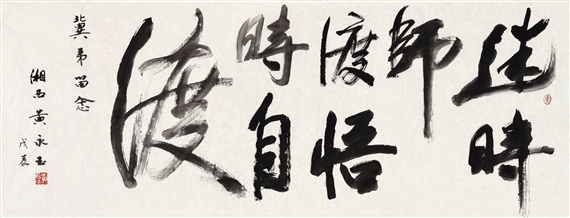 迷時
師
渡悟
時自
渡
冀弟留念
湘西黄永玉
戊辰